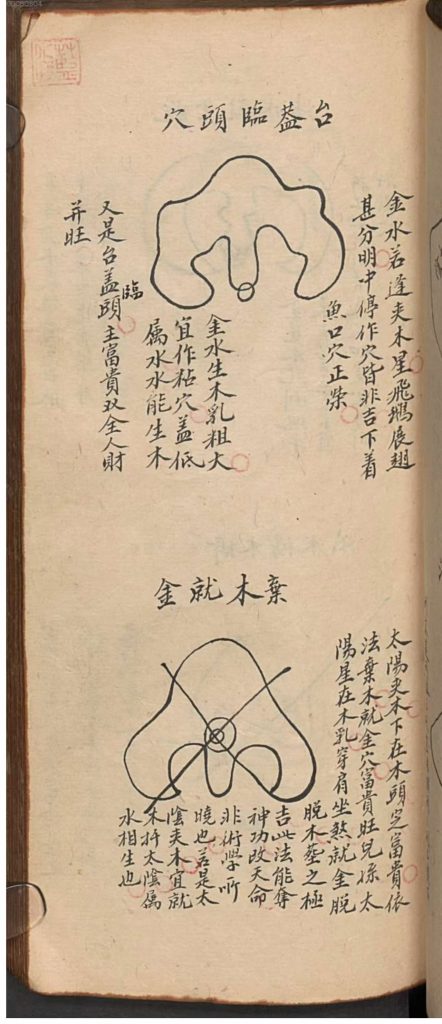 00080804
台葢臨頭穴
金水若逢夾木星飛鵝展翅
甚分明中停作穴皆非吉下着
魚口穴正榮
金水生木乳粗大
宜作粘穴葢低
属水水能生木
又是台葢臨頭主富貴双全人財
并旺
棄木就金
太陽夾木下在木頭定富貴依
法棄木就金穴富貴旺兒孫太
陽星在木乳穿肩坐煞就金脱
脱木塟之極
吉此法能奪
神功改天命
非術學所
曉也若是太
陰夾木宜就
木扦太陰属
水相生也